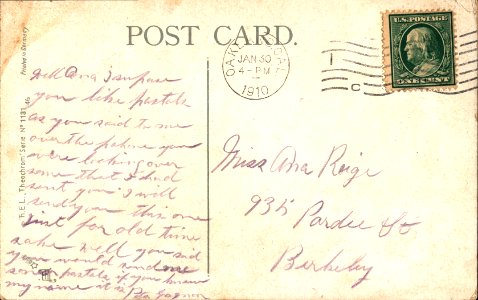 POST CARD.
U.S. POSTAGE
ONE CENT
OAKLAND, CAL.
JAN 30
4-PM
1910
1
C
Printed in Germany
T.H.E.L. "Theochrom" Serie Nº 1131
Well Ana I suposse
you like pastels
as you said to me
over the phone you
were looking over
some that I had
sent you I will
send you this one
just for old time
sake well you said
you would send me
some pastels if you knew
my name it is
Miss Ana Reige
935 Pardee St
Berkeley